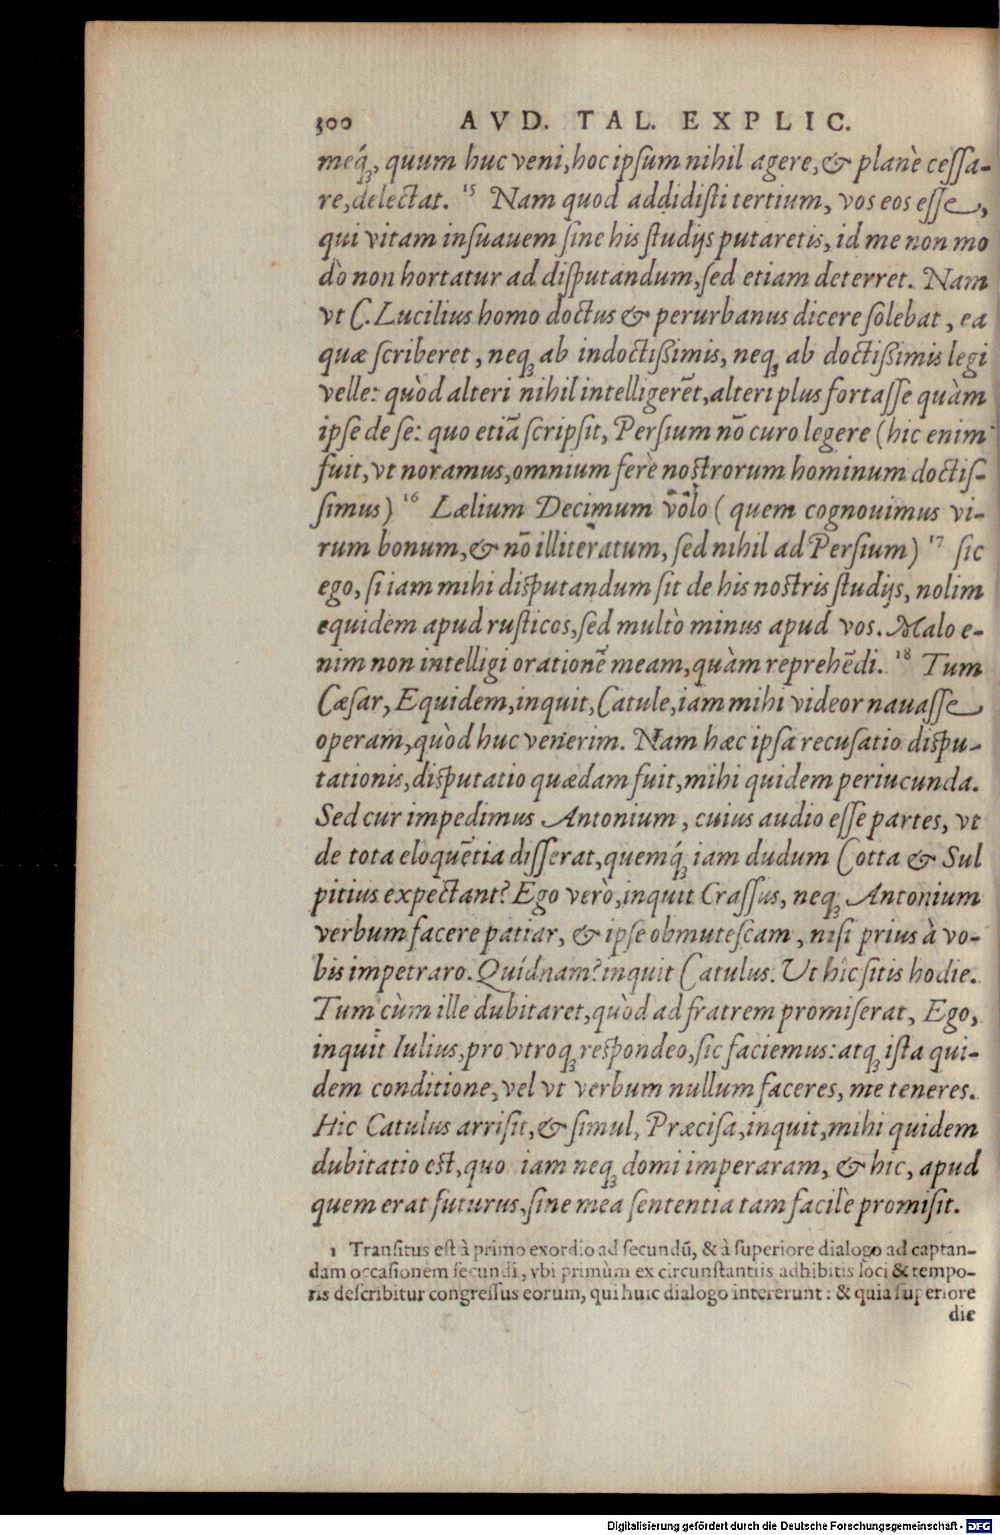 300 AVD. TAL. EXPLIC.
meq́;, quum huc veni, hoc ipsum nihil agere, & planè cessa-
re, delectat. 15 Nam quod addidisti tertium, vos eos esse,
qui vitam insuauem sine his studijs putaretis, id me non mo
dò non hortatur ad disputandum, sed etiam deterret. Nam
vt C. Lucilius homo doctus & perurbanus dicere solebat, ea
quæ scriberet, neq; ab indoctißimis, neq; ab doctißimis legi
velle: quòd alteri nihil intelligerēt, alteri plus fortasse quàm
ipse de se: quo etiā scripsit, Persium nō curo legere (hic enim
fuit, vt noramus, omnium ferè nostrorum hominum doctis-
simus) 16 Lælium Decimum vōlo (quem cognouimus vi-
rum bonum, & nō illiteratum, sed nihil ad Persium) 17 sic
ego, si iam mihi disputandum sit de his nostris studijs, nolim
equidem apud rusticos, sed multò minus apud vos. Malo e-
nim non intelligi orationē meam, quàm reprehēdi. 18 Tum
Cæsar, Equidem, inquit, Catule, iam mihi videor nauasse
operam, quòd huc venerim. Nam hæc ipsa recusatio dispu-
tationis, disputatio quædam fuit, mihi quidem periucunda.
Sed cur impedimus Antonium, cuius audio esse partes, vt
de tota eloquētia disserat, quemq́; iam dudum Cotta & Sul
pitius expectant? Ego verò, inquit Crassus, neq; Antonium
verbum facere patiar, & ipse obmutescam, nisi prius à vo-
bis impetraro. Quídnam? inquit Catulus. Ut hîc sitis hodie.
Tum cùm ille dubitaret, quòd ad fratrem promiserat, Ego,
inquit Iulius, pro vtroq; respondeo, sic faciemus: atq; ista qui-
dem conditione, vel vt verbum nullum faceres, me teneres.
Hic Catulus arrisit, & simul, Præcisa, inquit, mihi quidem
dubitatio est, quo iam neq; domi imperaram, & hic, apud
quem erat futurus, sine mea sententia tam facilè promisit.
1 Transitus est à primo exordio ad secundū, & à superiore dialogo ad captan-
dam occasionem secundi, vbi primùm ex circunstantiis adhibitis loci & tempo-
ris describitur congressus eorum, qui huic dialogo intererunt: & quia superiore
die
Digitalisierung gefördert durch die Deutsche Forschungsgemeinschaft - DFG